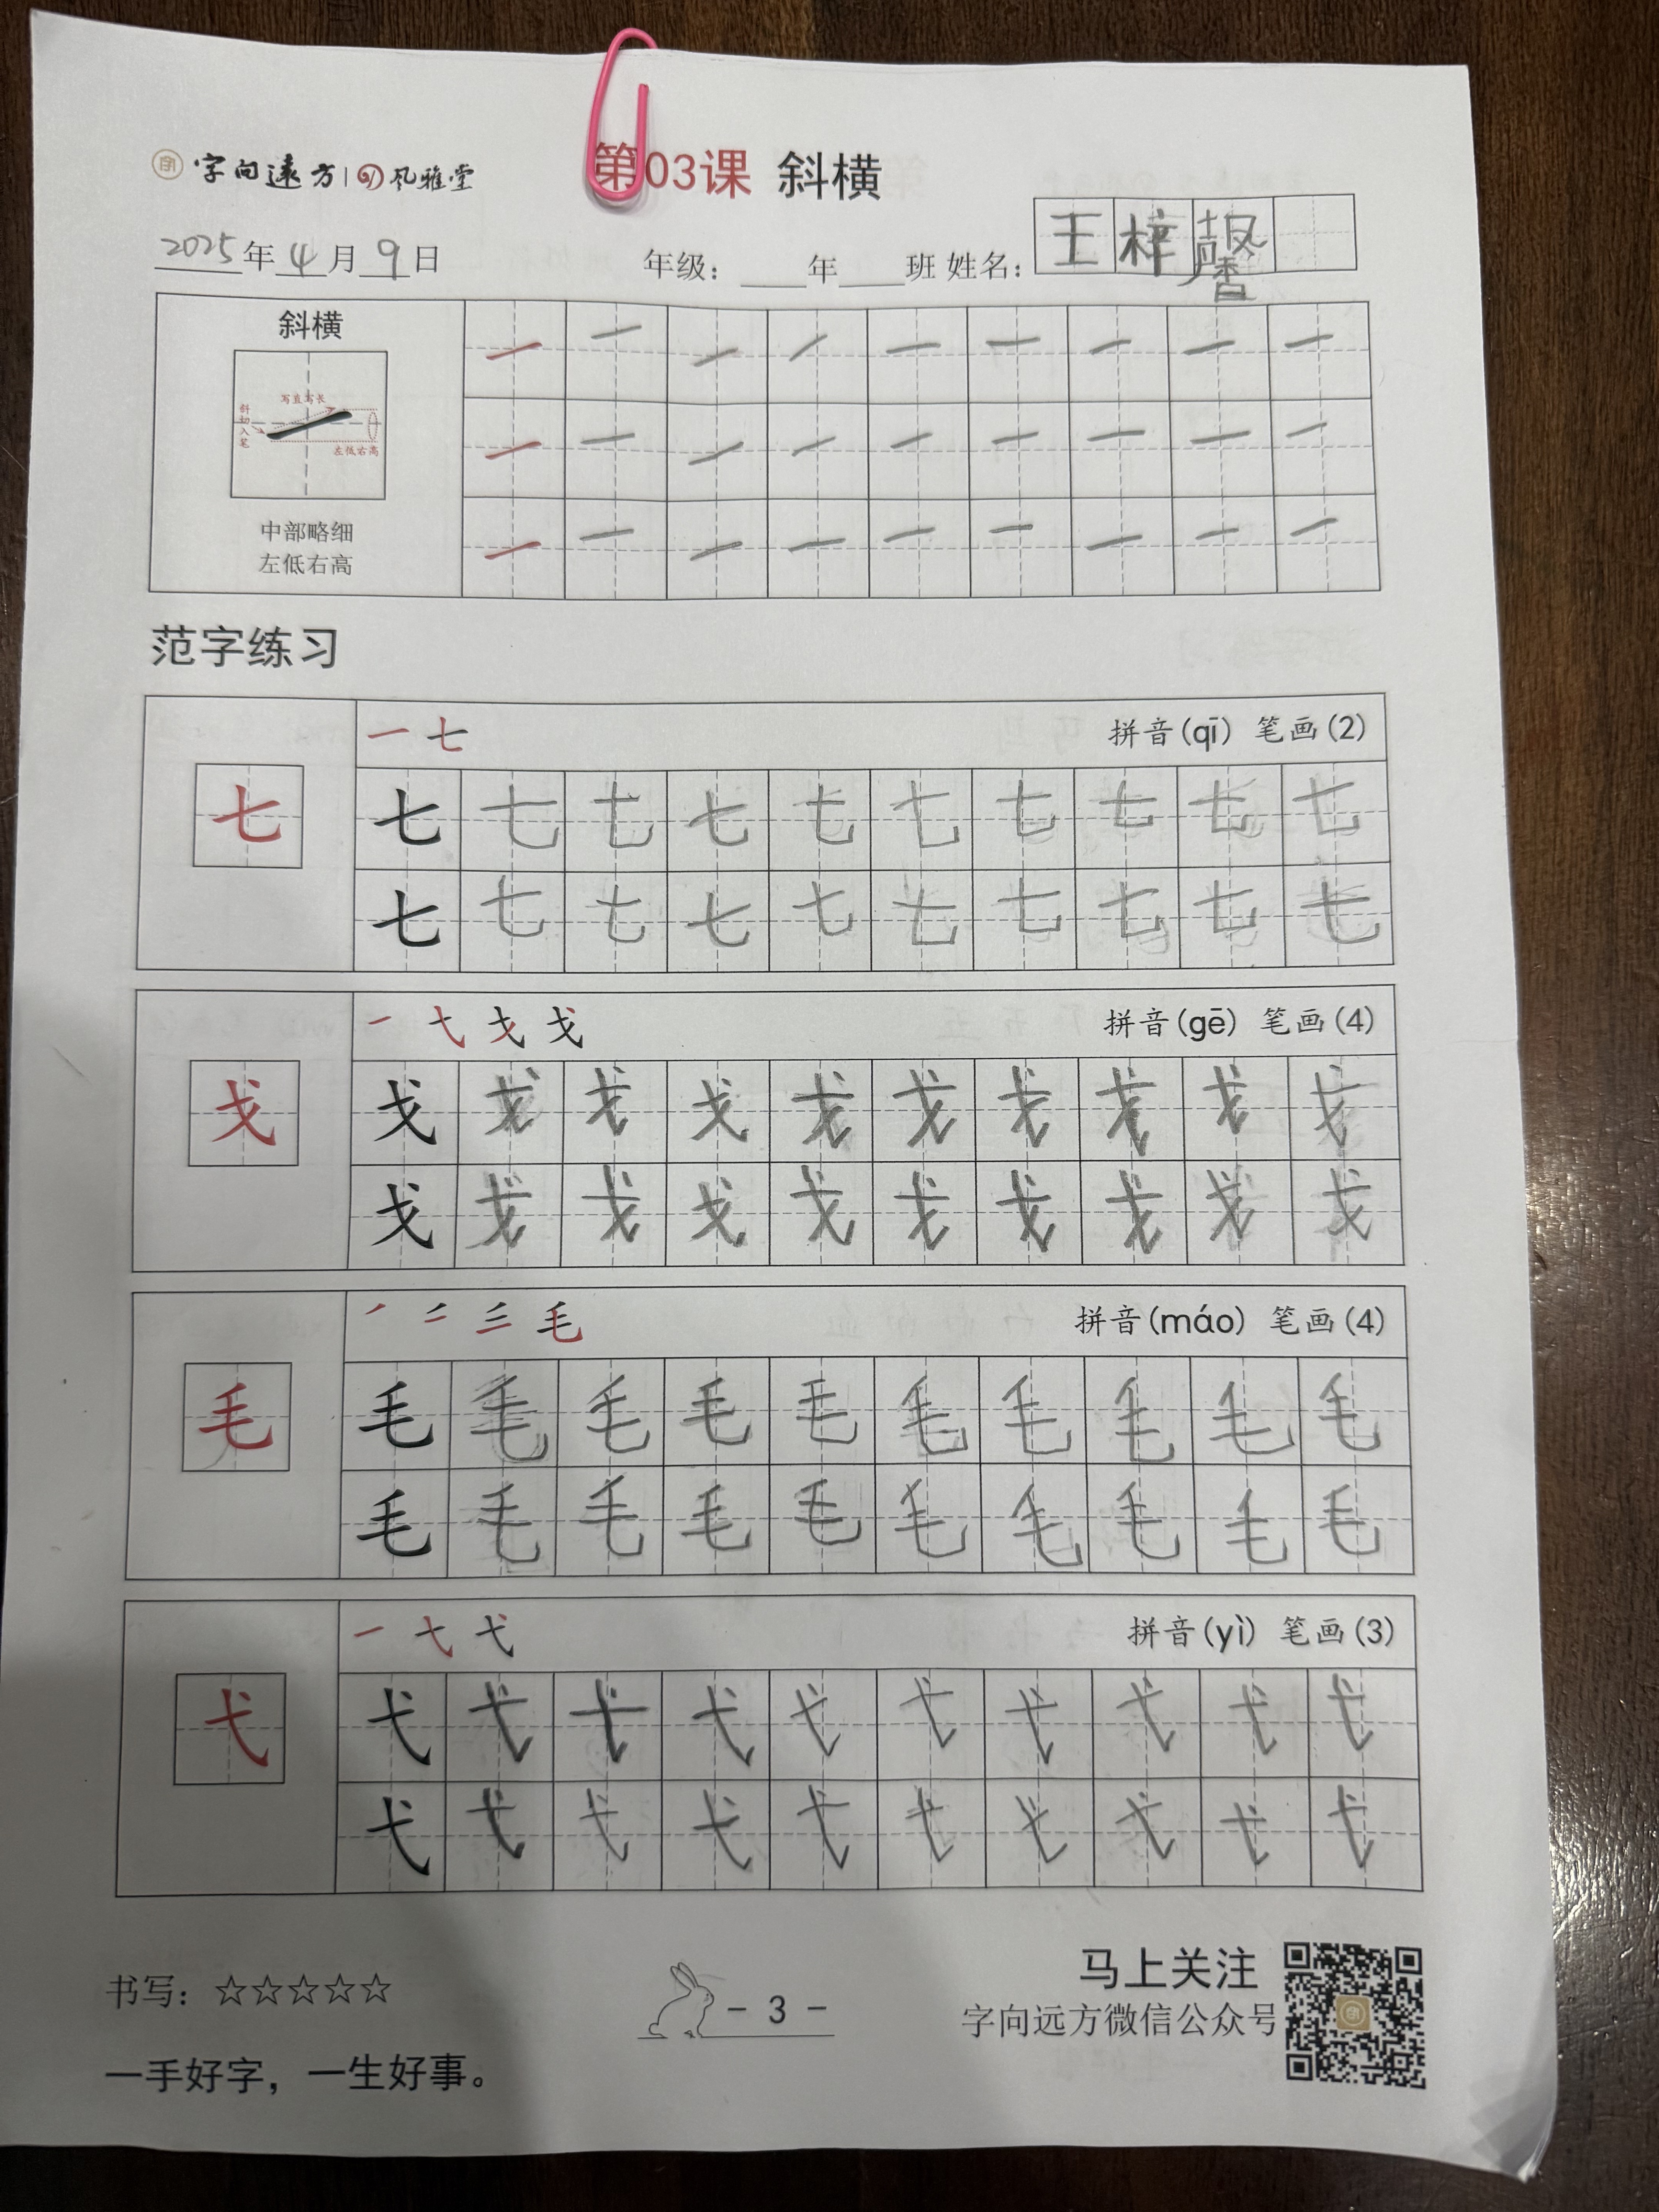 字向远方 | 风雅堂
第03课 斜横
2025年4月9日 年级：____年____班 姓名：王梓馨
斜横
写直写长
斜切入笔
左低右高
中部略细
左低右高
一 一 一 一 一 一 一 一 一
一 一 一 一 一 一 一 一 一
一 一 一 一 一 一 一 一 一
范字练习
一 七 拼音(qī) 笔画(2)
七
七 七 七 七 七 七 七 七 七 七
七 七 七 七 七 七 七 七 七 七
一 弋 戈 拼音(gē) 笔画(4)
戈
戈 戈 戈 戈 戈 戈 戈 戈 戈 戈
戈 戈 戈 戈 戈 戈 戈 戈 戈 戈
毛 拼音(máo) 笔画(4)
毛
毛 毛 毛 毛 毛 毛 毛 毛 毛 毛
毛 毛 毛 毛 毛 毛 毛 毛 毛 毛
一 弋 拼音(yì) 笔画(3)
弋
弋 弋 弋 弋 弋 弋 弋 弋 弋 弋
弋 弋 弋 弋 弋 弋 弋 弋 弋 弋
书写：☆☆☆☆☆
- 3 -
马上关注
字向远方微信公众号
一手好字，一生好事。